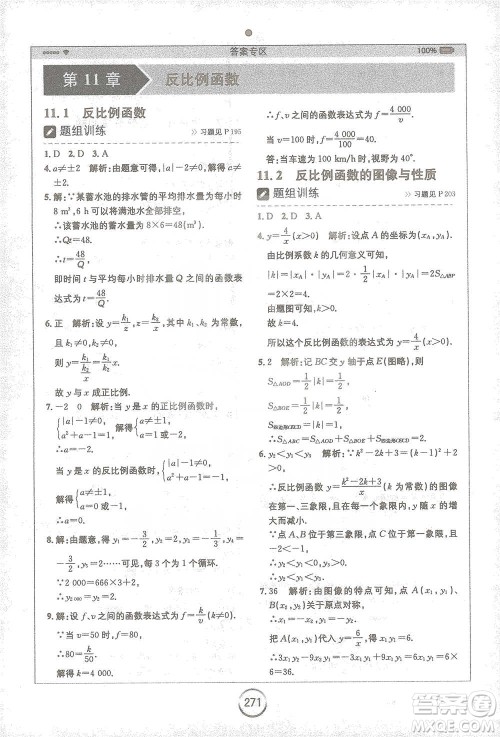 答案专区
100%
第 11 章 反比例函数
11.1 反比例函数
题组训练
>> 习题见 P195
1. D 2. D 3. A
4. a≠±2 解析:由题意可得,|a|-2≠0,则 a≠±2.
5. 解:∵某蓄水池的排水管的平均排水量为每小时
8 m³,6 h 可以将满池水全部排空,
∴该蓄水池的蓄水量为 8×6=48(m³).
∴Qt=48.
∴t=48/Q.
即时间 t 与平均每小时的排水量 Q 之间的函数表
达式为 t=48/Q.
6. 正 解析:设 y=k₁/x,z=k₂/y,且 k₁,k₂ 为常数,
且 k₁≠0,k₂≠0,则 z=k₂/(k₁/x)=k₂/k₁ x.
故 z 与 x 成正比例.
7. -2 0 解析:当 y 是 x 的正比例函数时,
解得
当 y 是 x 的反比例函数时,
解得
∴a=0.
8. 解:由题意,可得 y₁=-3/2,y₂=2,y₃=-1/3,
y₄=-3/2,y₅=2,……,可见,每 3 个数为 1 个循环.
∵2 000=666×3+2,
∴y₂₀₀₀=y₂=2.
9. 解:设 f、v 之间的函数表达式为 f=k/v(k≠0).
∵当 v=50 时,f=80,∴80=k/50.
解得 k=4 000.
∴f、v 之间的函数表达式为 f=4 000/v.
当 v=100 时,f=4 000/100=40(度).
答:当车速为 100 km/h 时,视野为 40 度.
11.2 反比例函数的图像与性质
题组训练
>> 习题见 P203
1. D 2. D 3. A
4. y=4/x(x>0) 解析:设点 A 的坐标为(x_A,y_A).
由比例系数 k 的几何意义可知,
|k|=|x_A|·|y_A|=2×1/2|x_A|·|y_A|=2S△ABP
=2×2=4.
由题图可知,k>0,∴k=4.
所以这个反比例函数的表达式为 y=4/x(x>0).
5. 2 解析:记 BC 交 y 轴于点 E(图略),则
S△AOD=1/2|k|=1/2,
S△BOE=1/2|k|=1/2.
∴S△ABC=S△AOD+S△BOE+S矩形OECD=2.
6. y₂<y₁<y₃ 解析:∵k²-2k+3=(k-1)²+2>0,
∴反比例函数 y=(k²-2k+3)/x(k 为常数)的图像
在第一、三象限,且在每一个象限内,y 随 x 的增
大而减小.
∴点 A、B 位于第三象限,点 C 位于第一象限,且
-2<-1.
∴y₂<y₁<y₃.
7. 36 解析:由图像的特点可知,A(x₁,y₁)、B(x₂,
y₂)关于原点对称,∴x₁=-x₂,y₁=-y₂.
把 A(x₁,y₁)代入 y=6/x(x>0),得 x₁y₁=6.
∴3x₁y₂-9x₂y₁=-3x₁y₁+9x₁y₁=6x₁y₁
271
答案圈
MXQE.COM